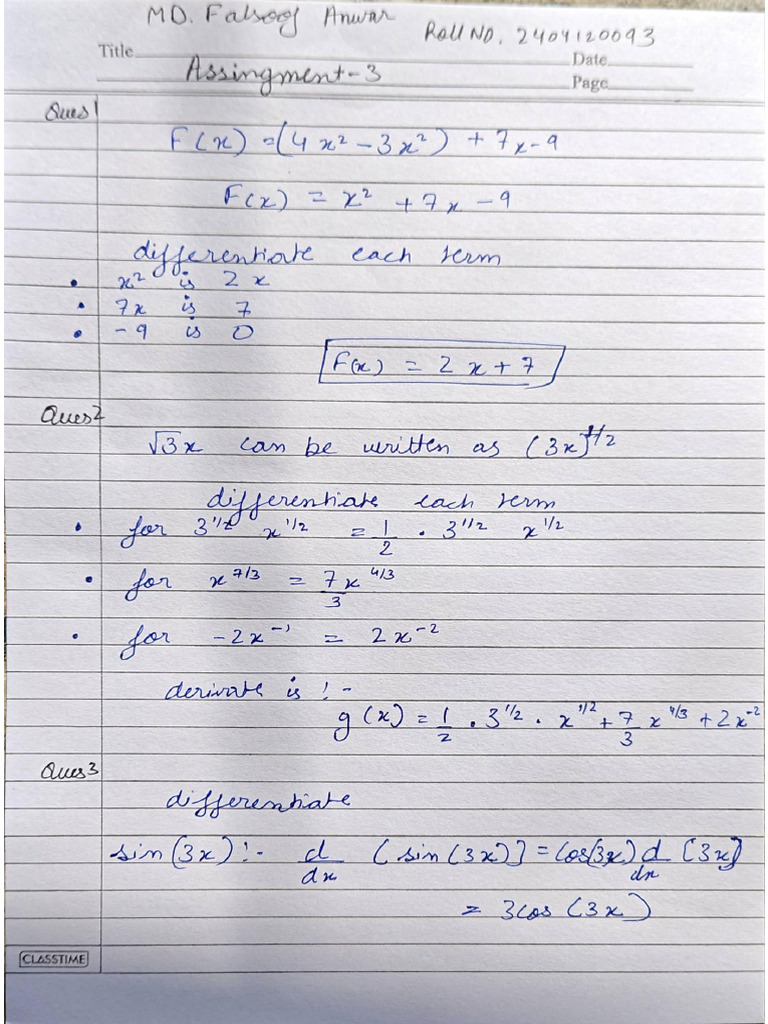 MD. Falsoof Anwar Roll NO. 2404120093
Title Date
Assingment-3 Page
Ques 1
F(x) = (4x² - 3x²) + 7x - 9
F(x) = x² + 7x - 9
differentiate each term
• x² is 2x
• 7x is 7
• -9 is 0
F(x) = 2x + 7
Ques 2
√3x can be written as (3x)^1/2
differentiate each term
• for 3^1/2 x^1/2 = 1/2 · 3^1/2 x^1/2
• for x^7/3 = 7x^4/3 / 3
• for -2x^-1 = 2x^-2
derivate is :-
g(x) = 1/2 · 3^1/2 · x^1/2 + 7/3 x^4/3 + 2x^-2
Ques 3
differentiate
sin(3x) :- d/dx (sin(3x)] = Cos(3x) d/dx [3x]
= 3cos(3x)
CLASSTIME